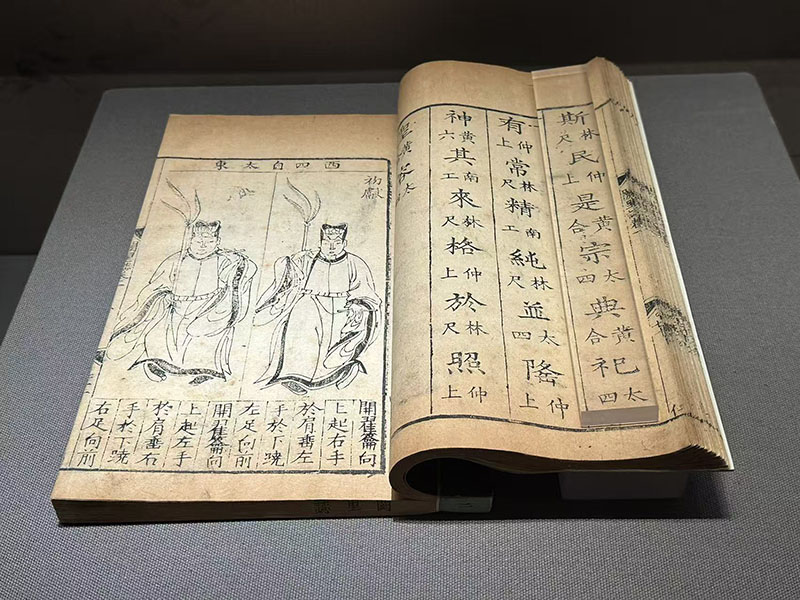 斯林尺民仲上是黃合宗太四典黃合祀太四
有仲上常林尺精南工純林尺並太四隆仲上
神黃六其南工來林尺格仲上於林尺照仲上
西四太東
初獻
開翟籥向
上起右手
於肩垂左
手於下蹺
左足向前
開翟籥向
上起左手
於肩垂右
手於下蹺
右足向前